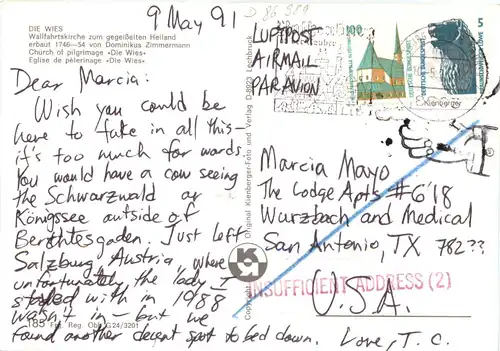 DIE WIES
Wallfahrtskirche zum gegeißelten Heiland
erbaut 1746—54 von Dominikus Zimmermann
Church of pilgrimage «Die Wies»
Eglise de pèlerinage «Die Wies»
9 May 91
D 86 989
Dear Marcia:
Wish you could be
here to take in all this—
it's too much for words.
You would have a cow seeing
the Schwarzwald or
Königssee outside of
Berchtesgaden. Just left
Salzburg, Austria, where
unfortunately the lady I
stayed with in 1988
wasn't in — but we
found another decent spot to bed down. Love, T. C.
185 Frg. Reg. Obb. G 24/3201
Original Kienberger-Foto und Verlag D-8923 Lechbruck
Copyright
LUFTPOST
AIRMAIL
PAR AVION
100
5
Kienberger
Marcia Mayo
The Lodge Apts #618
Wurzbach and Medical
San Antonio, TX 782??
U.S.A.
INSUFFICIENT ADDRESS (2)